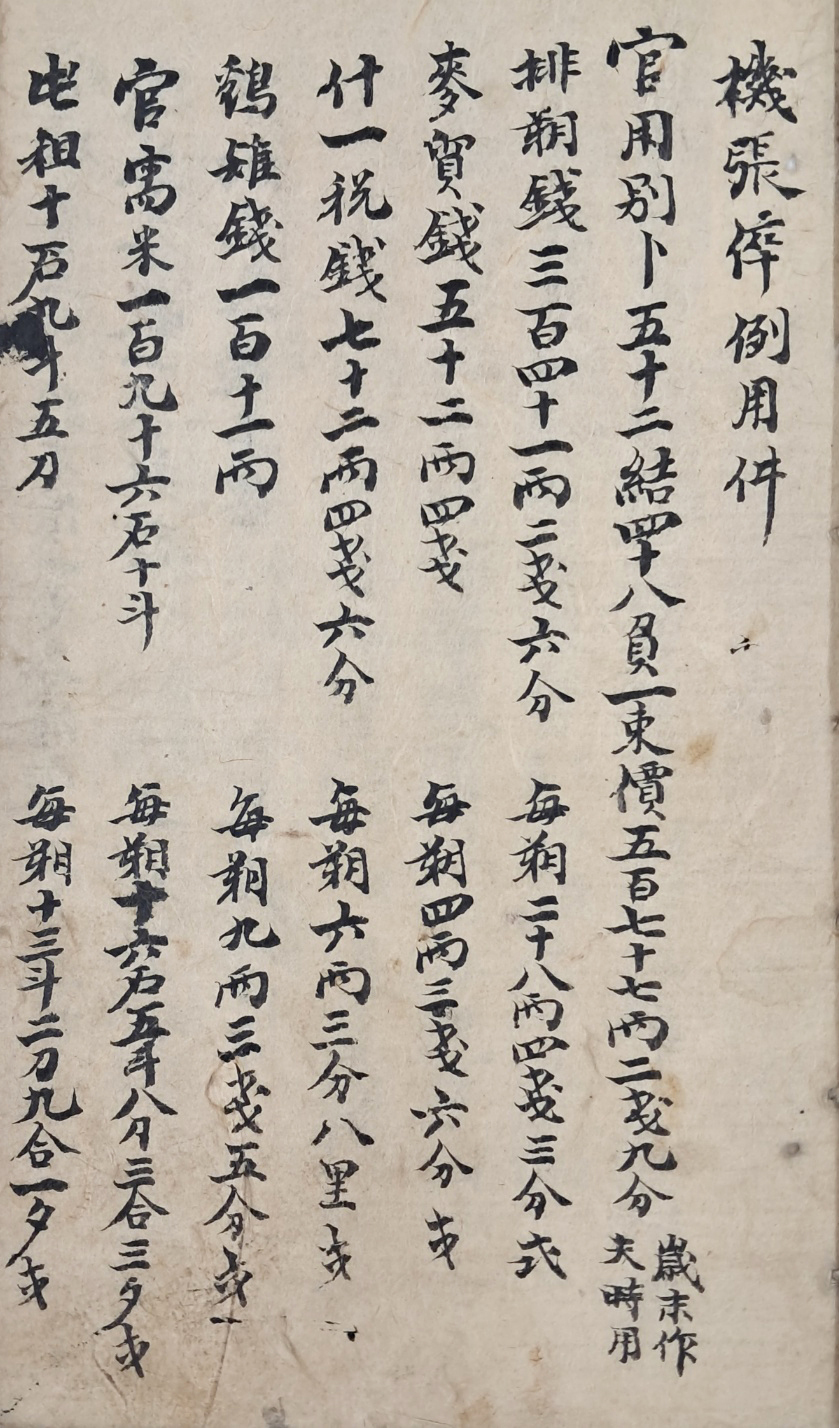 機張倅例用件
官用別卜五十二結四十八負一束價五百七十七兩二戔九分 歲末作夫時用
排朔錢三百四十一兩二戔六分 每朔二十八兩四戔三分式
麥貿錢五十二兩四戔 每朔四兩三戔六分式
什一税錢七十二兩四戔六分 每朔六兩三分八里式
鷄雉錢一百十一兩 每朔九兩三戔五分式
官需米一百九十六石十斗 每朔十六石五斗八刀三合三夕式
屯租十石九斗五刀 每朔十三斗二刀九合一夕式